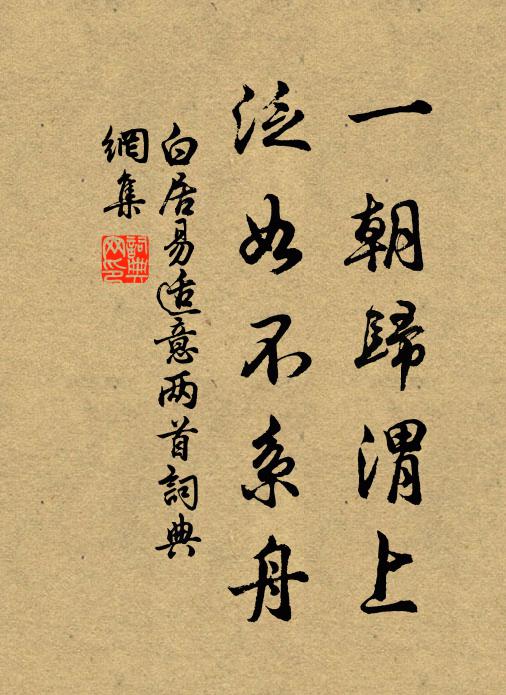 一朝歸渭上
泛如不系舟
白居易适意两首詞典
網集
詞典
网印